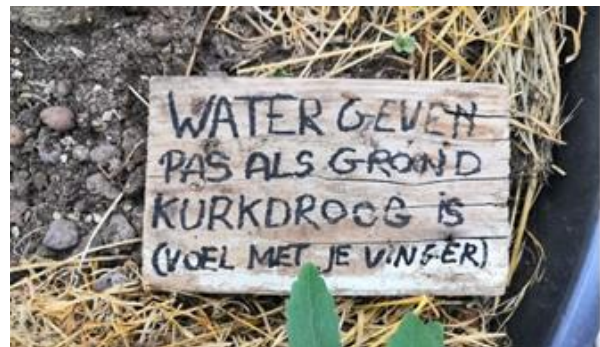 WATER GEVEN
PAS ALS GROND
KURKDROOG iS
(VOEL MET JE VINGER)